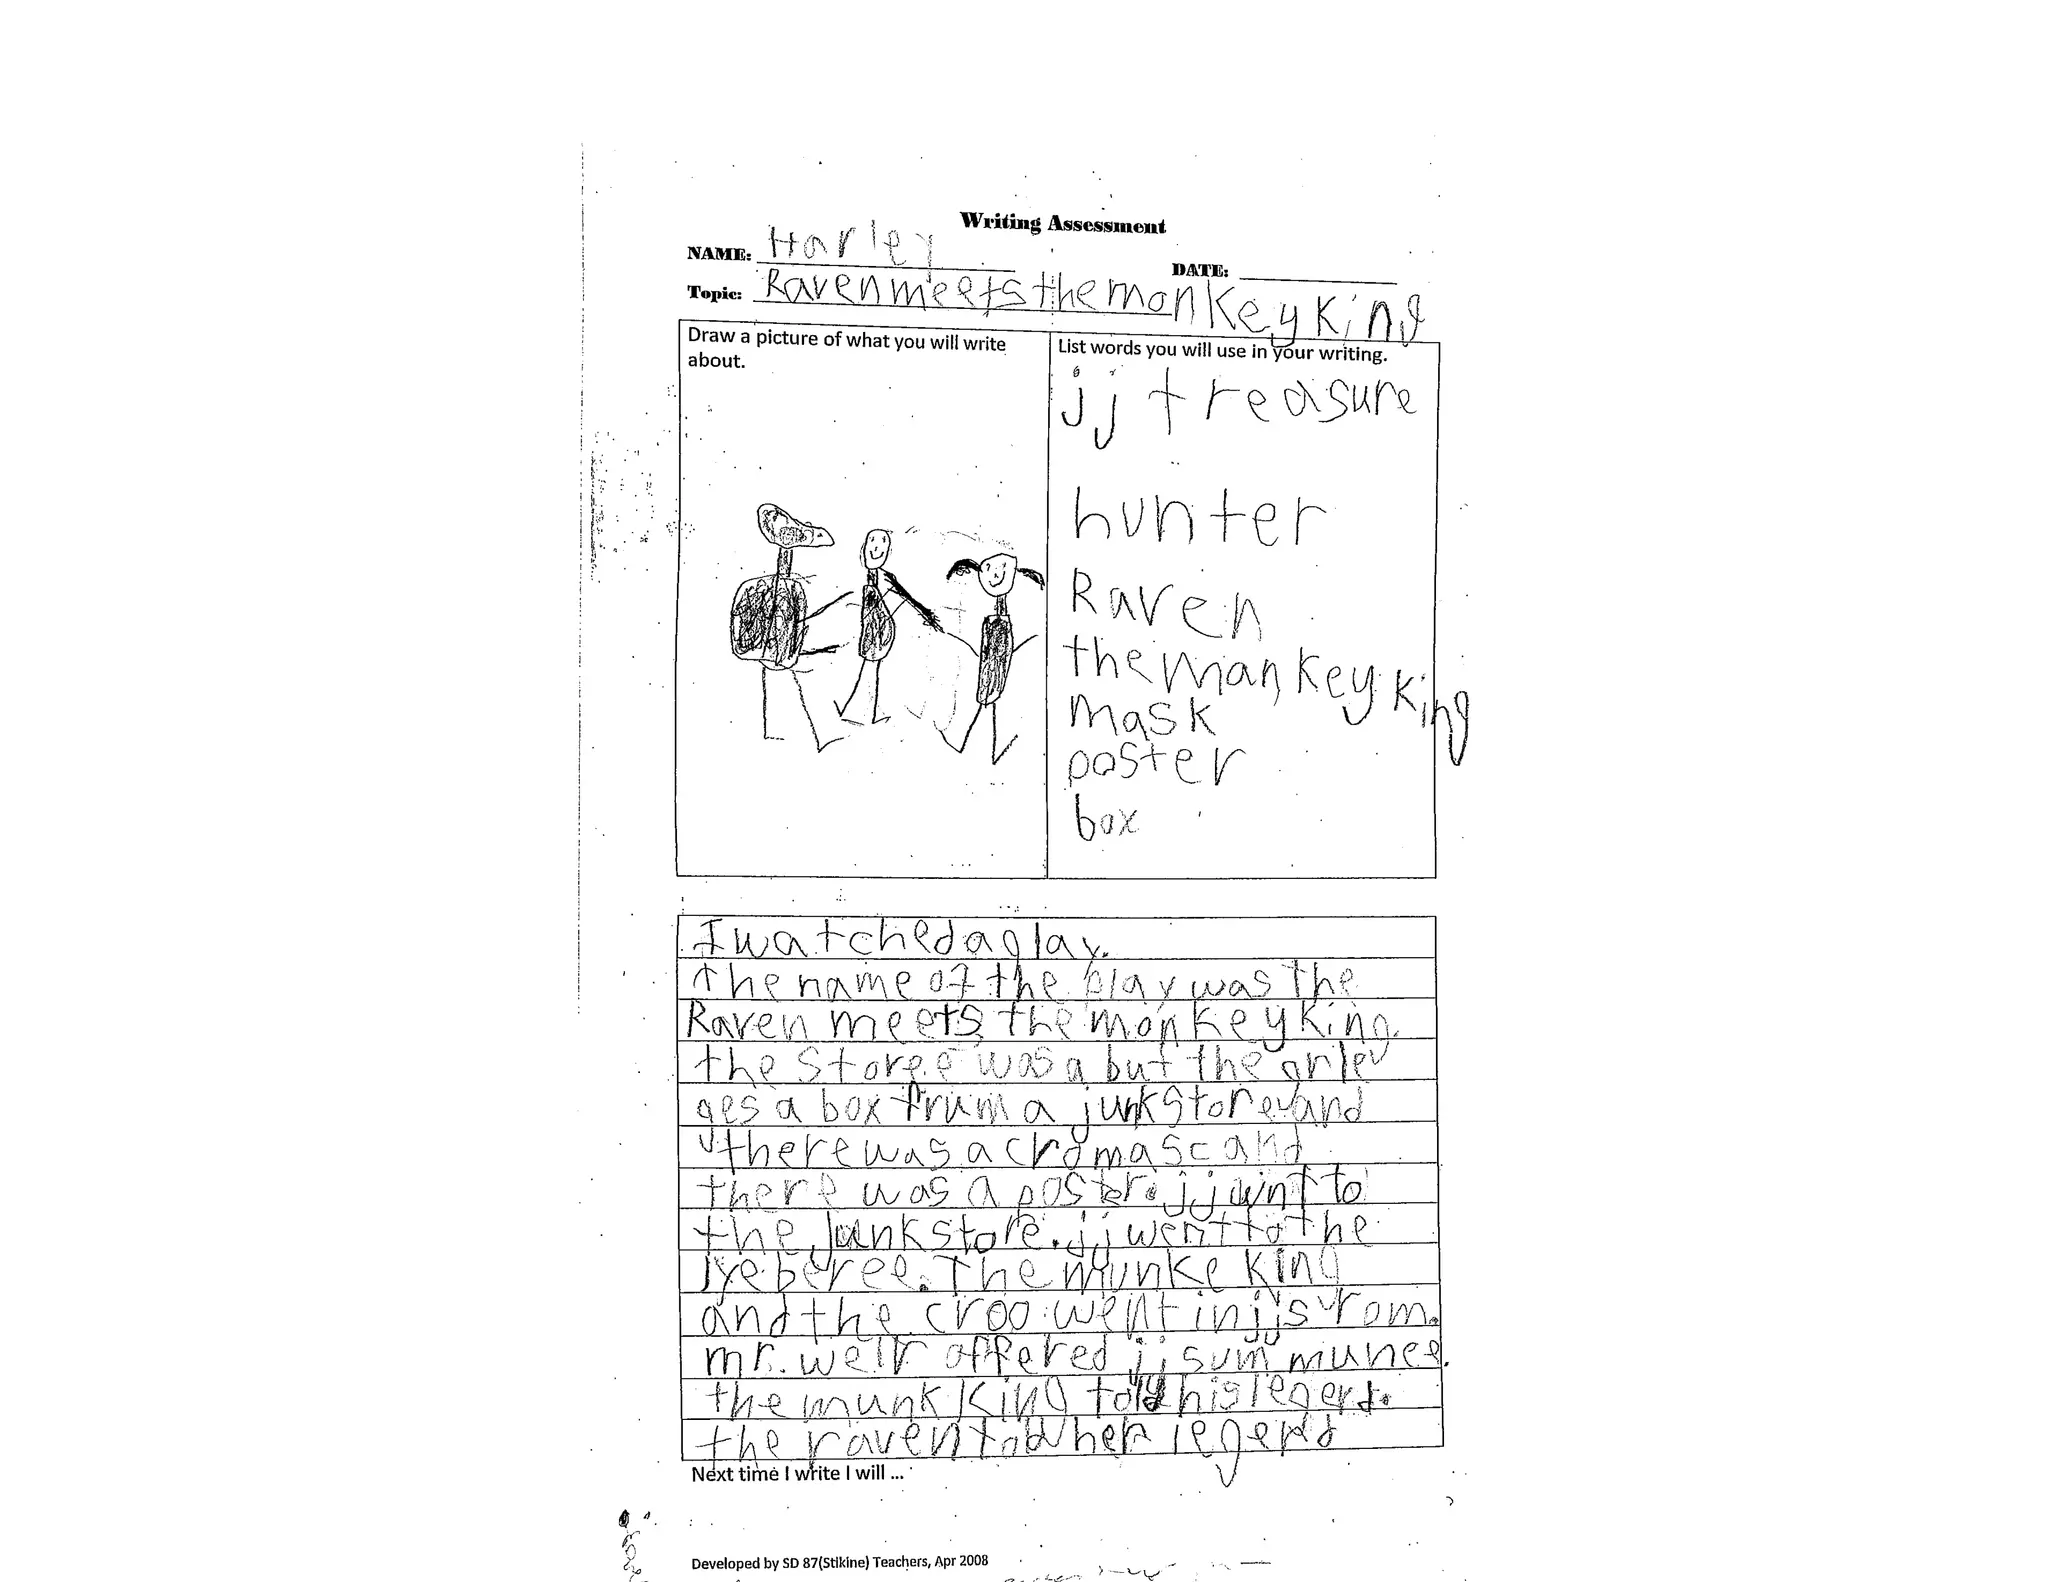 Writing Assessment
NAME: Harley
DATE:
Topic: Raven meets the monkey king
Draw a picture of what you will write
about.
List words you will use in your writing.
jj treasure
hunter
Raven
the mankey king
mask
poster
box
I watched a play.
the name of the play was The
Raven meets the monkey king.
the storee was a but the grle
ges a box frum a junkstore and
there was a cro masc and
there was a poster. jj wnt to
the junkstore. jj went to the
lyeberee. The munke king
and the croo went in jjs rom.
mr. weir offered jj sum munee.
the munk king told his legend.
the raven told her legend
Next time I write I will ...
Developed by SD 87(Stikine) Teachers, Apr 2008